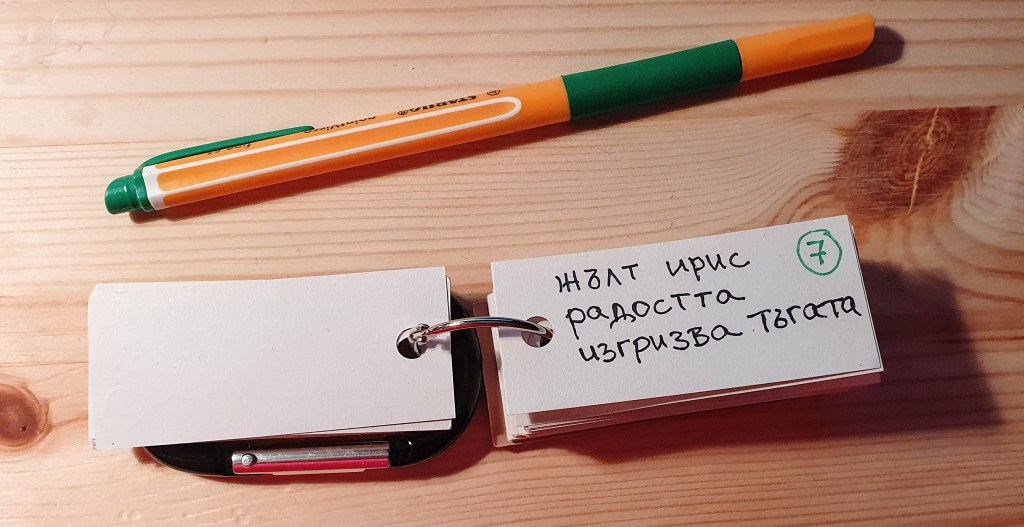 STABILO®
pointVisco®
жълт ирис
7
радостта
изгризва тъгата